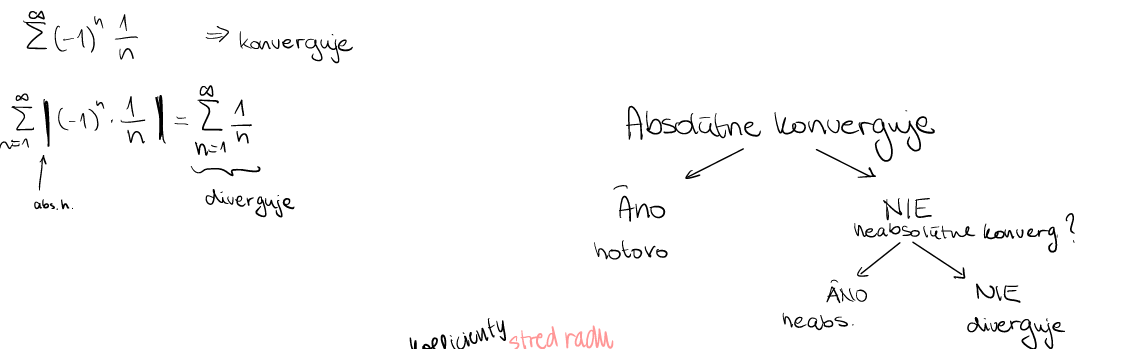 ∞
∑ (-1)ⁿ 1/n ⇒ konverguje
∞ ∞
∑ |(-1)ⁿ · 1/n| = ∑ 1/n
n=1 n=1
abs.h.
diverguje
Absolūtne konverguje
Āno
hotovo
NIE
neabsolūtne konverg?
ÂNO
neabs.
NIE
diverguje
koeficienty stred radu